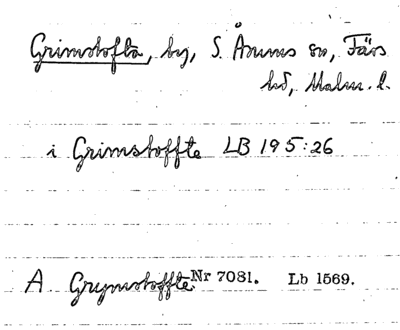 Grimstofta, by, S. Åsums sn, Färs
hd, Malm. l.
i Grimstoffte LB 195:26
A Grymstoffte Nr 7081. Lb 1569.